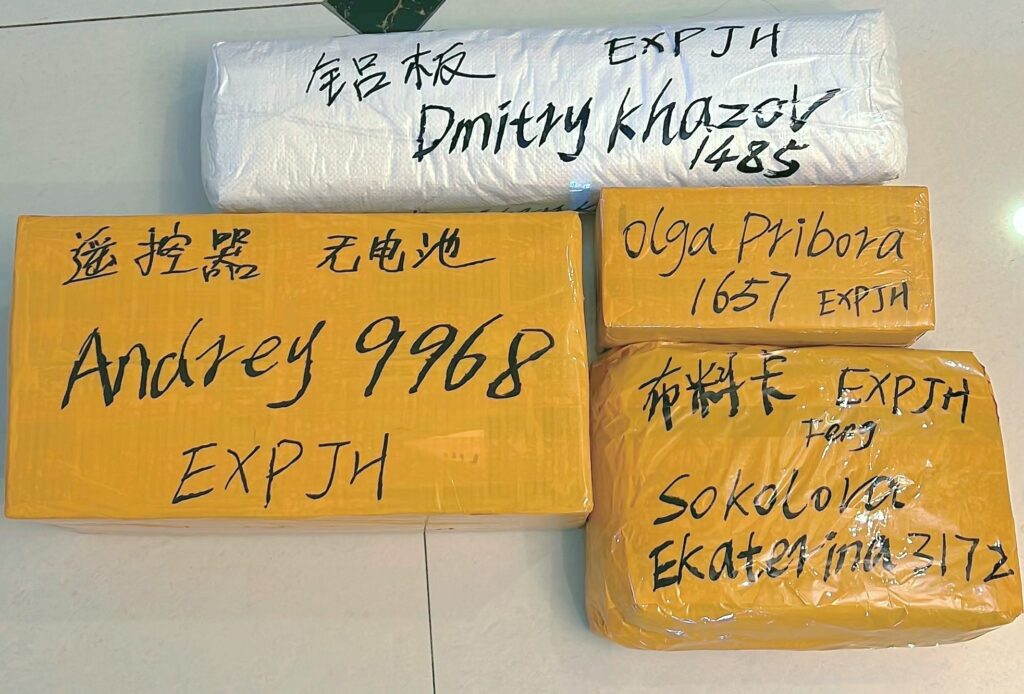 铝板 EXPJH
Dmitry Khazov
1485
遥控器 无电池
Andrey 9968
EXPJH
Olga Pribora
1657 EXPJH
布料卡 EXPJH
Feng
Sokolova
Ekaterina 3172